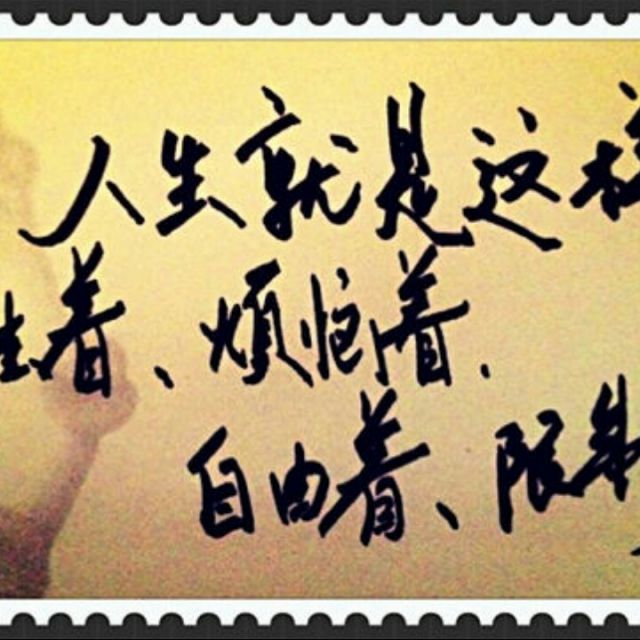 人生就是这样
着、烦恼着.
自由着、限制